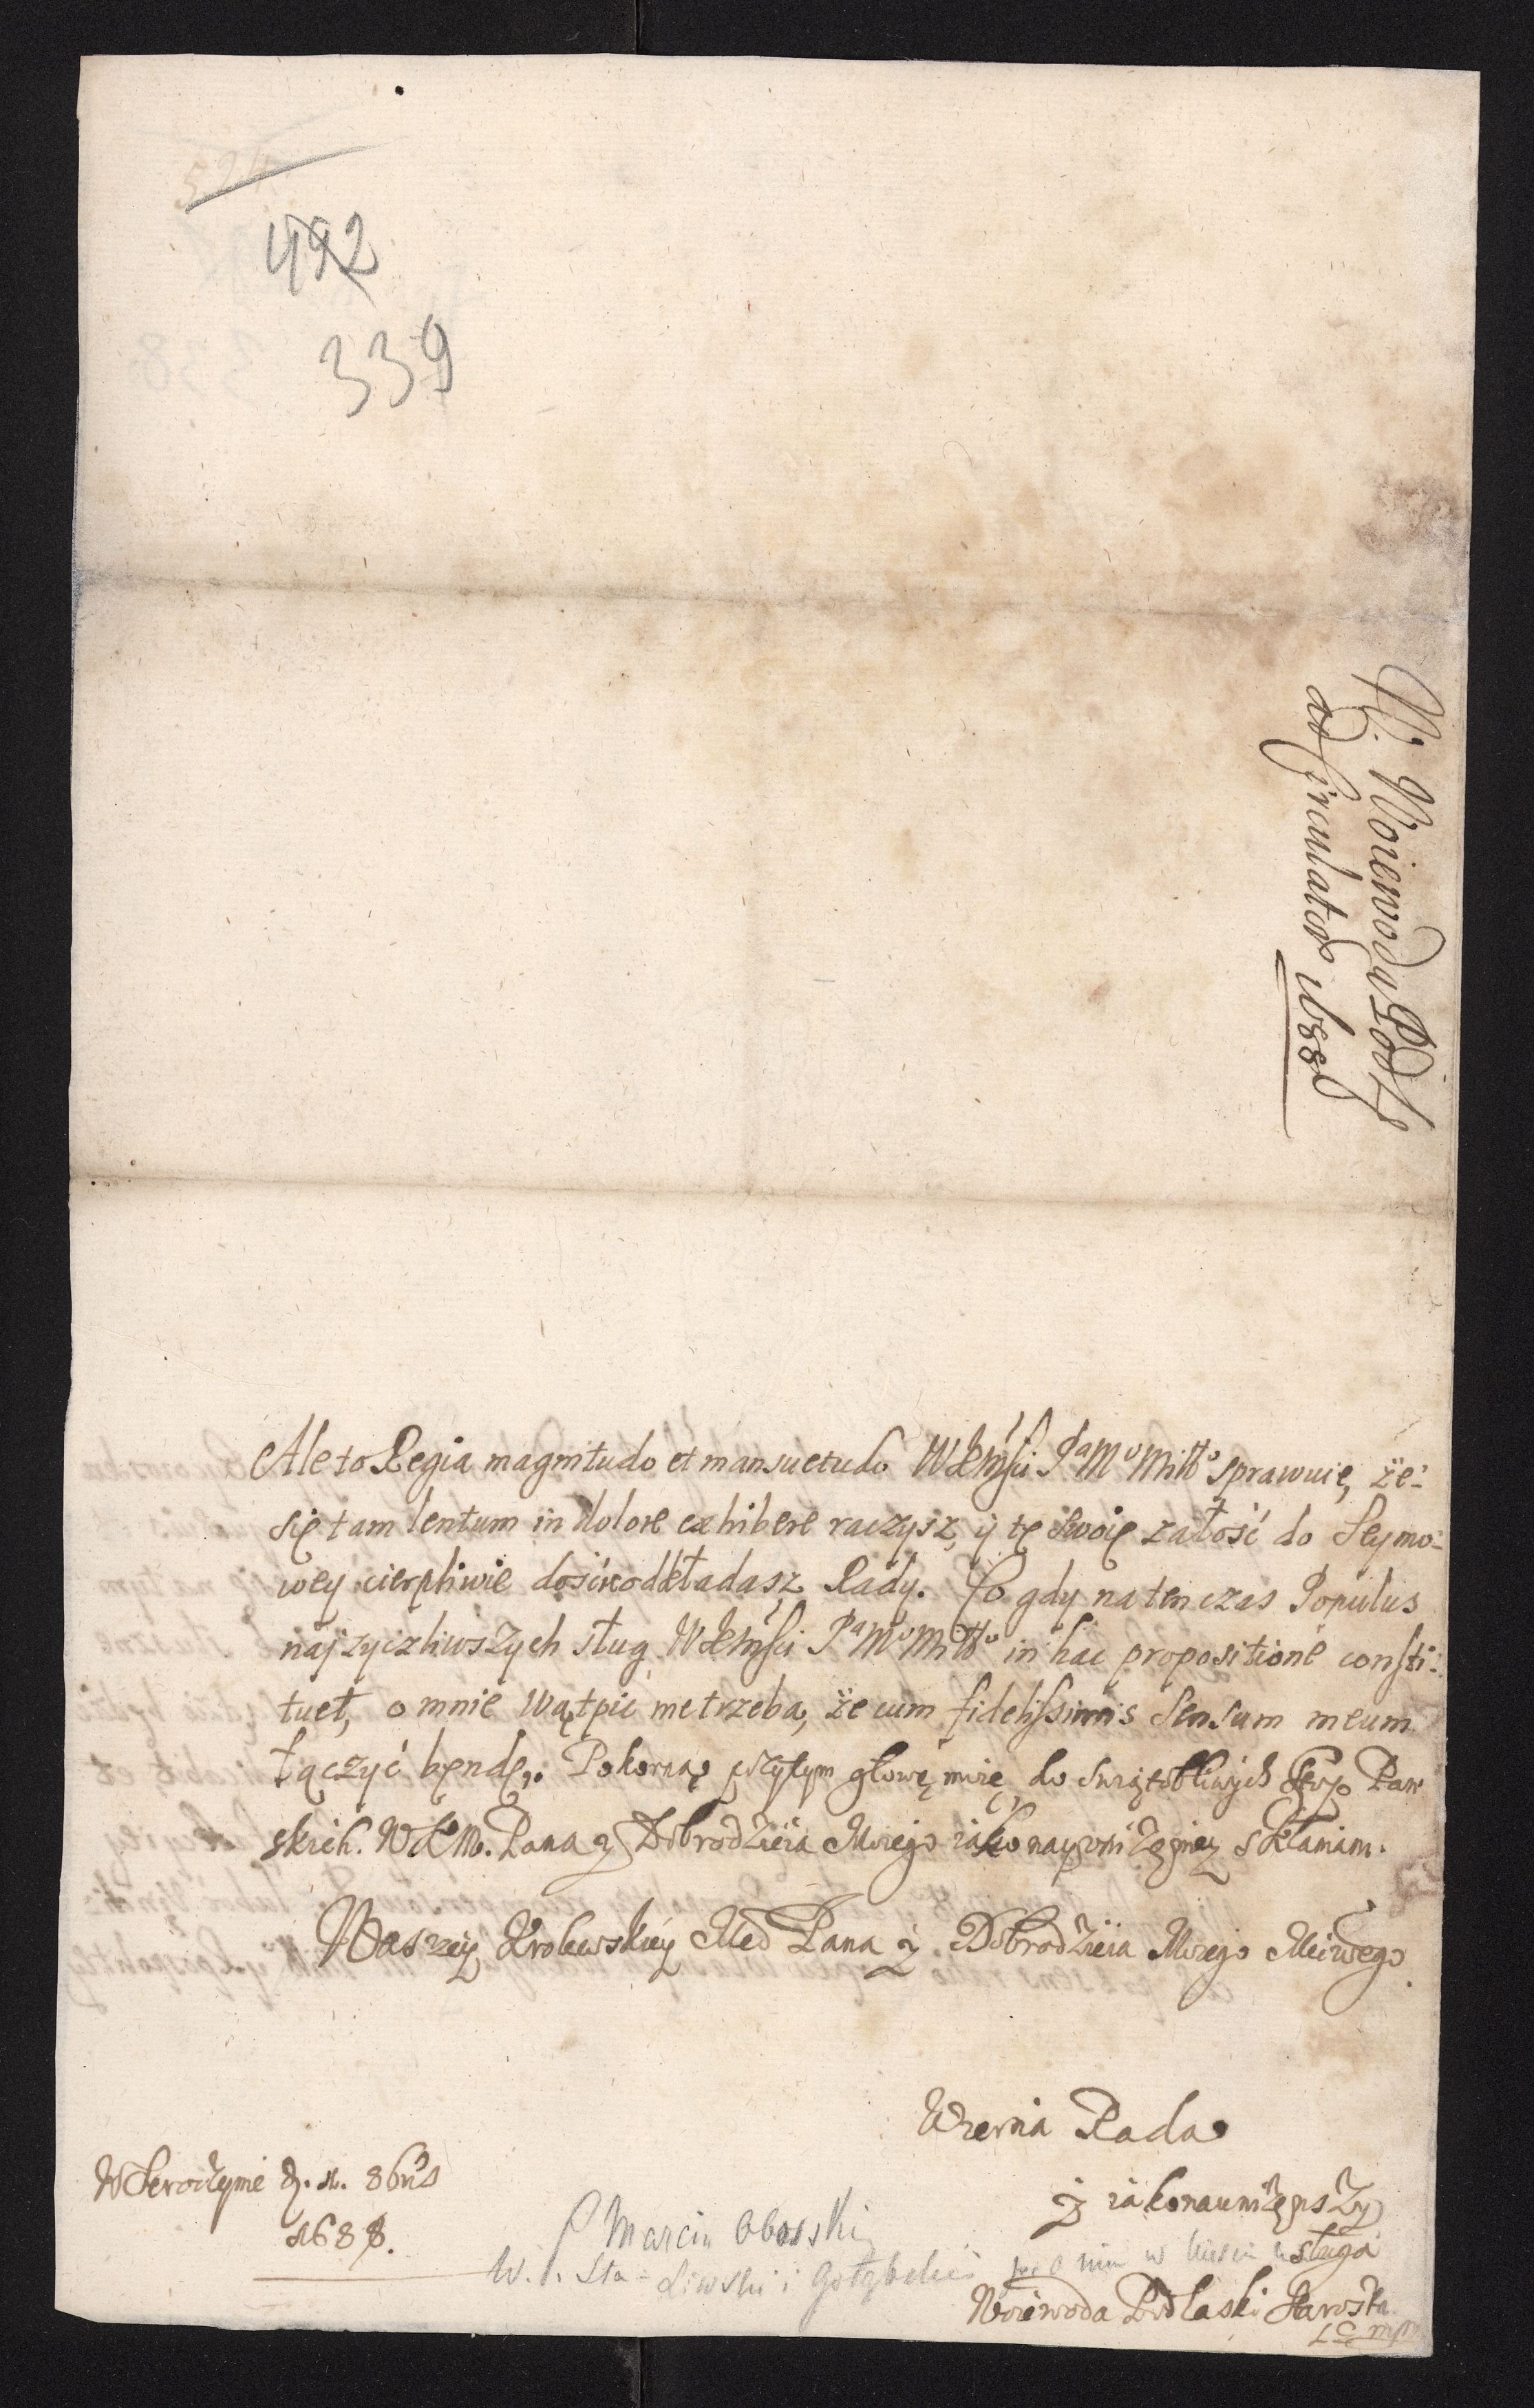 524
492
339
W. Woiewoda Podl
ad circulator 1688
Ale to Regia magnitudo et mansuetudo WKMści Pa Mo Miłło sprawuie, że-
się tam lentum in dolore exhibere raczysz, ÿ tę swoię załość do Seymo-
wey cierpliwie dośćeodkładasz Rady. Co gdy na ten czas Populus
najzyczliwszych sług WKMści Pa Mo Miłło in hac propositione consti-
tuet, o mnie wątpić nie trzeba, że cum fidelissimis sensum meum
łączyć będę. Pokorną przytym głowę moię do swiętobliwych stop Pań
skich. WKM. Pana y Dobrodzieia Moiego iako nayoniżęniey skłaniam.
Waszey Krolewskiey Mści Pana y Dobrodzieia Moiego Mciwego
Wierna Rada
y iako naunizęnszy
sługa
Woiewoda Podlaski Starosta
W Seroczynie d. 11. 8bris
1688.
Marcin Oborski
W. P. Sta- Liwski i